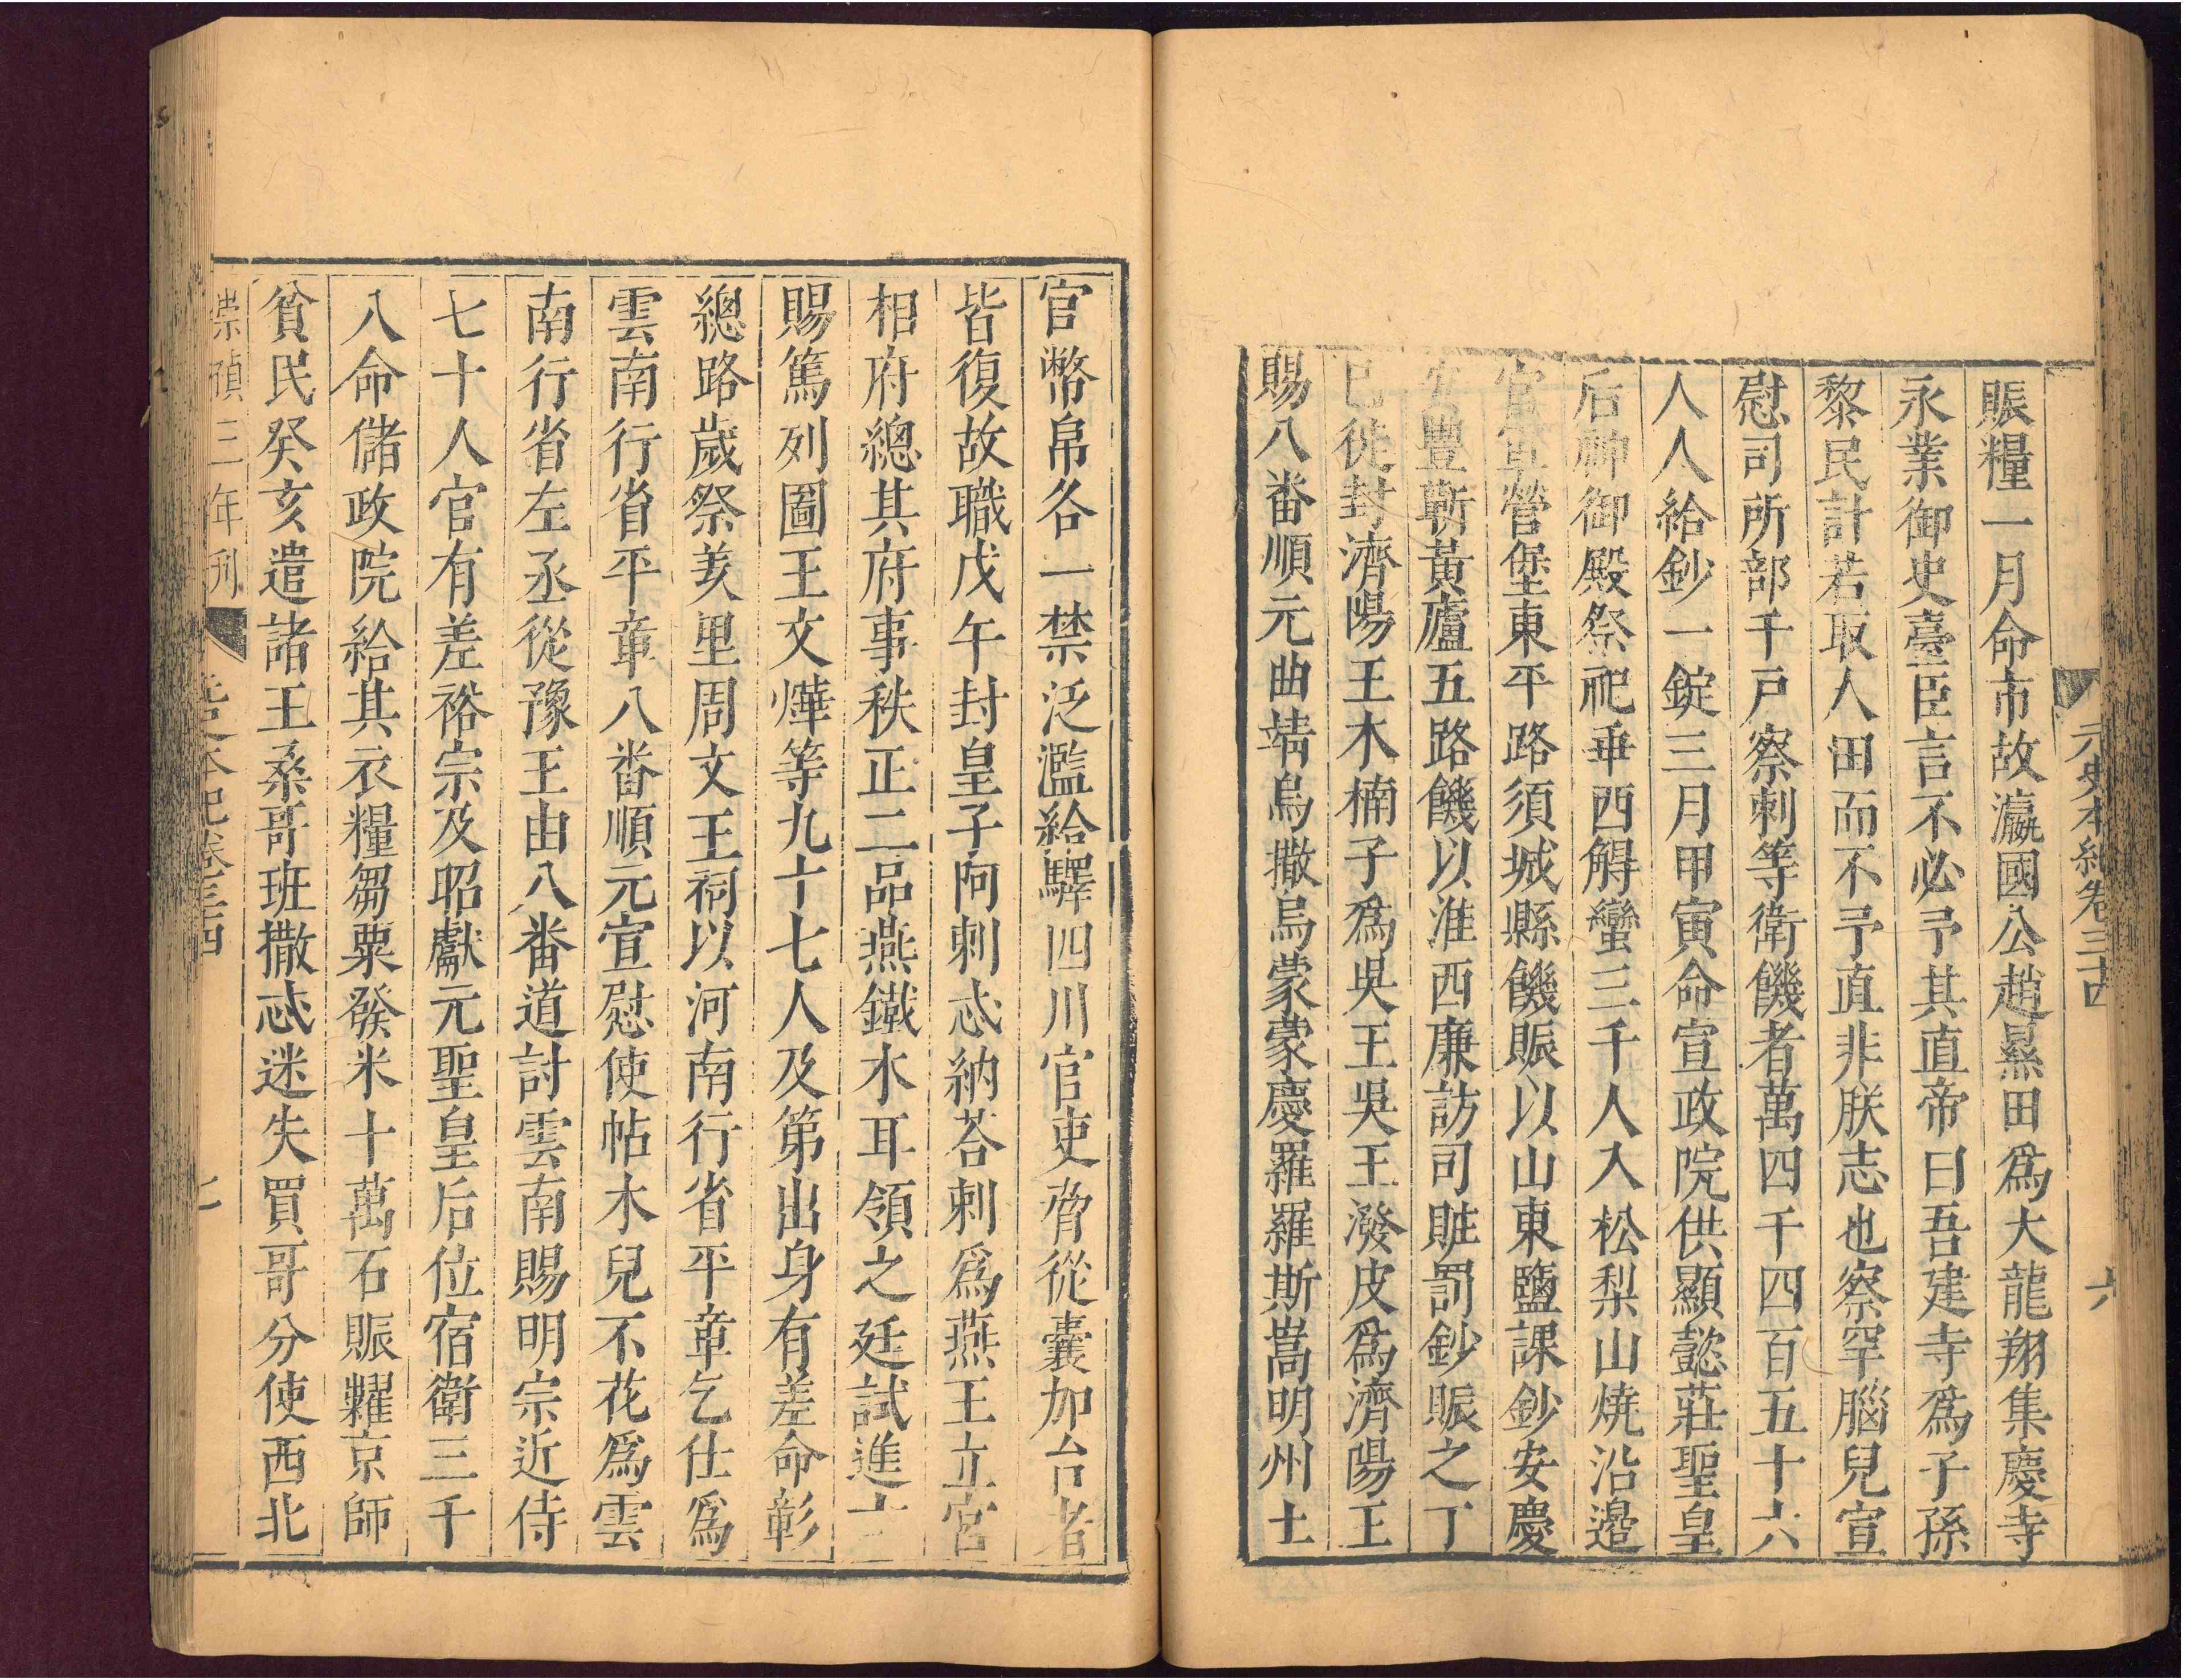 元史本紀卷三十四
六
賑糧一月命市故瀛國公趙㬎田爲大龍翔集慶寺
永業御史臺臣言不必予其直帝曰吾建寺爲子孫
黎民計若取人田而不予直非朕志也察罕腦兒宣
慰司所部千戶察剌等衛饑者萬四千四百五十六
人人給鈔一錠三月甲寅命宣政院供顯懿莊聖皇
后神御殿祭祀垂西解蠻三千人入松梨山燒沿邉
官軍營堡東平路須城縣饑賑以山東鹽課鈔安慶
安豐蘄黃廬五路饑以淮西廉訪司贓罰鈔賑之丁
巳徙封濟陽王木楠子爲吳王吳王潑皮爲濟陽王
賜八番順元曲靖烏撒烏蒙蒙慶羅羅斯嵩明州土
官幣帛各一禁泛濫給驛四川官吏脅從囊加台者
皆復故職戊午封皇子阿剌忒納荅剌爲燕王立宮
相府總其府事秩正二品燕鐵木耳領之廷試進士
賜篤列圖王文燁等九十七人及第出身有差命彰
總路歲祭羑里周文王祠以河南行省平章乞住爲
雲南行省平章八番順元宣慰使帖木兒不花爲雲
南行省左丞從豫王由八番道討雲南賜明宗近侍
七十人官有差裕宗及昭獻元聖皇后位宿衛三千
八命儲政院給其衣糧芻粟發米十萬石賑糶京師
貧民癸亥遣諸王桑哥班撒忒迷失買哥分使西北
崇禎三年刊
元史本紀卷三十四
七